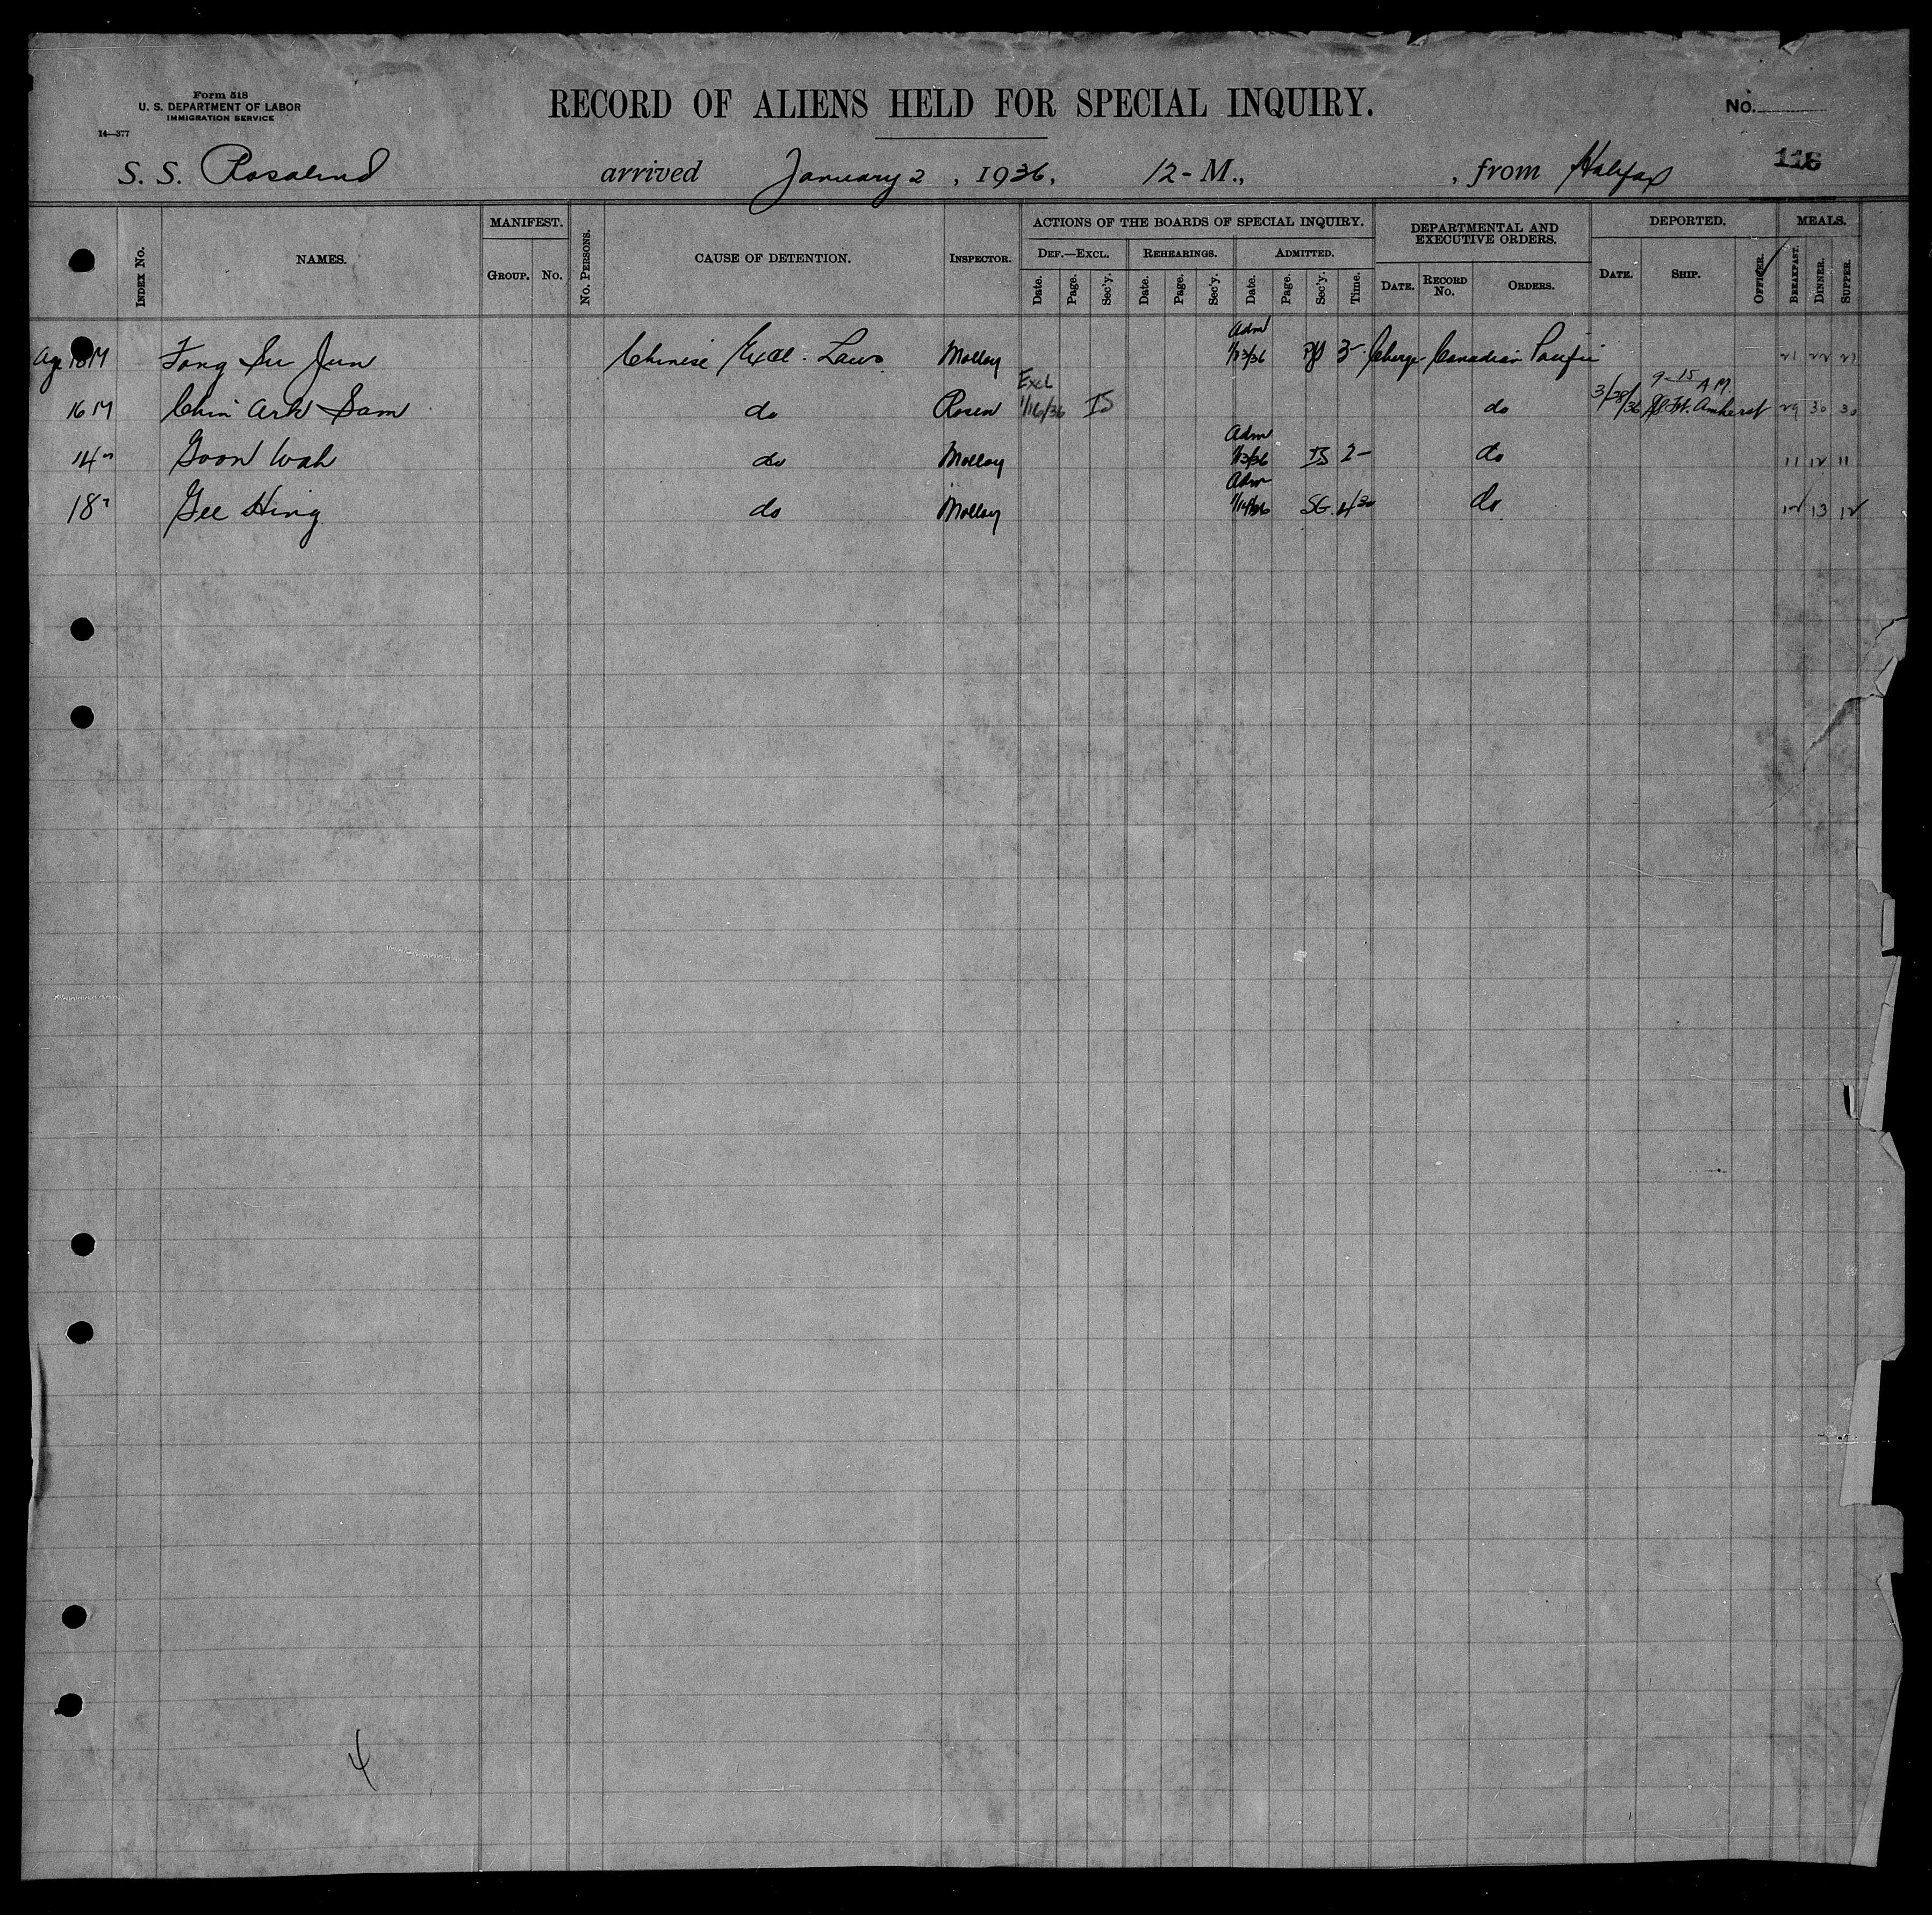 Form 518
U. S. DEPARTMENT OF LABOR
IMMIGRATION SERVICE
14—377
RECORD OF ALIENS HELD FOR SPECIAL INQUIRY.
No.
S. S. Rosalind arrived January 2, 1936, 12 - M., , from Halifax
116
INDEX No.
NAMES.
MANIFEST.
GROUP. No.
No. PERSONS.
CAUSE OF DETENTION.
INSPECTOR.
ACTIONS OF THE BOARDS OF SPECIAL INQUIRY.
DEF.—EXCL. REHEARINGS. ADMITTED.
Date. Page. Sec'y. Date. Page. Sec'y. Date. Page. Sec'y. Time.
DEPARTMENTAL AND
EXECUTIVE ORDERS.
DATE. RECORD No. ORDERS.
DEPORTED.
DATE. SHIP. OFFICER.
MEALS.
BREAKFAST. DINNER. SUPPER.
Age 18 M Fong Su Jun Chinese Excl. Laws Molloy Adm 1/23/36 3- Charge Canadian Pacific 21 22 21
16 M Chin Ark Sam do Rosen Excl 1/16/36 IS do 3/28/36 9-15 AM SS Ft. Amherst 29 30 30
14 " Goon Wah do Molloy Adm 1/13/36 IS 2- do 11 12 11
18 " Gee Hing do Molloy Adm 1/14/36 SG 4 30 do 12 13 12
4